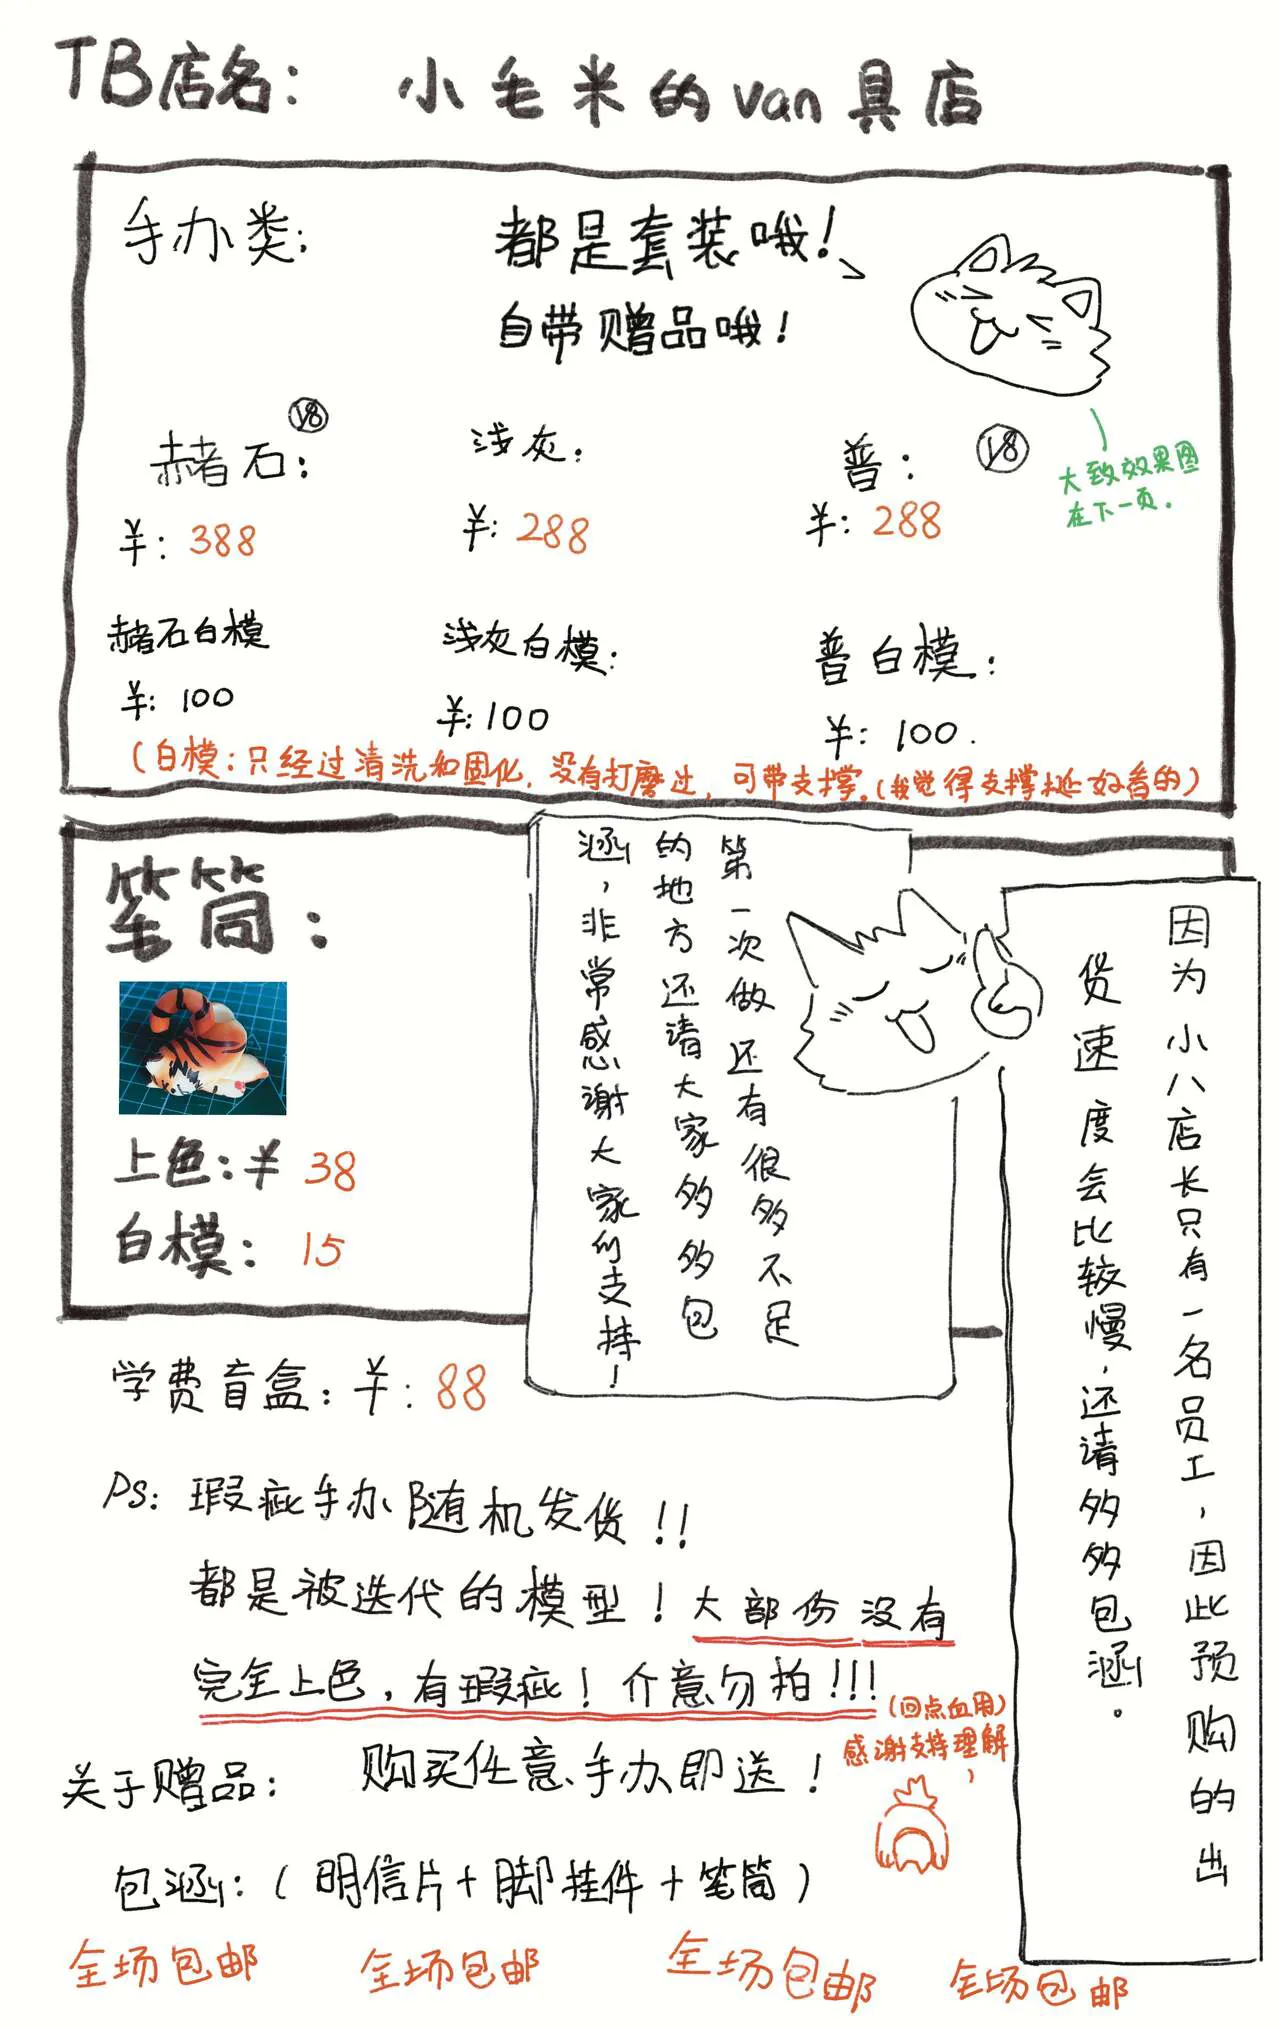 TB店名： 小毛米的van具店
手办类：
都是套装哦！
自带赠品哦！
大致效果图
在下一页.
赭石： 18
¥：388
浅灰：
¥：288
普： 18
¥：288
赭石白模
¥：100
浅灰白模：
¥：100
普白模：
¥：100.
（白模：只经过清洗和固化，没有打磨过，可带支撑.（我觉得支撑挺好看的）
笔筒：
上色：¥ 38
白模： 15
第一次做还有很多不足
的地方还请大家多多包
涵，非常感谢大家的支持！
因为小八店长只有一名员工，因此预购的出
货速度会比较慢，还请多多包涵。
学费盲盒：¥：88
PS：瑕疵手办随机发货！！
都是被迭代的模型！大部份没有
完全上色，有瑕疵！介意勿拍！！！
（回点血用）
感谢支持理解，
关于赠品： 购买任意手办即送！
包涵：（明信片+脚挂件+笔筒）
全场包邮 全场包邮 全场包邮 全场包邮